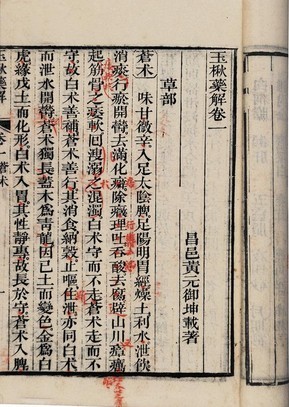 玉楸藥解卷一
昌邑黃元御坤載著
草部
蒼术 味甘微辛入足太陰脾足陽明胃經燥土利水泄飲
消痰行瘀開鬱去滿化癖除癥理吐吞酸去腐辟山川瘴癘
起筋骨之痿軟回溲溺之混濁白术守而不走蒼术走而不
守故白术善補蒼术善行其消食納穀止嘔住泄亦同白术
而泄水開鬱蒼术獨長蓋木為青龍因己土而變色金為白
虎緣戊土而化形白术入胃其性靜專故長於守蒼术入脾
玉楸藥解 卷一 蒼术